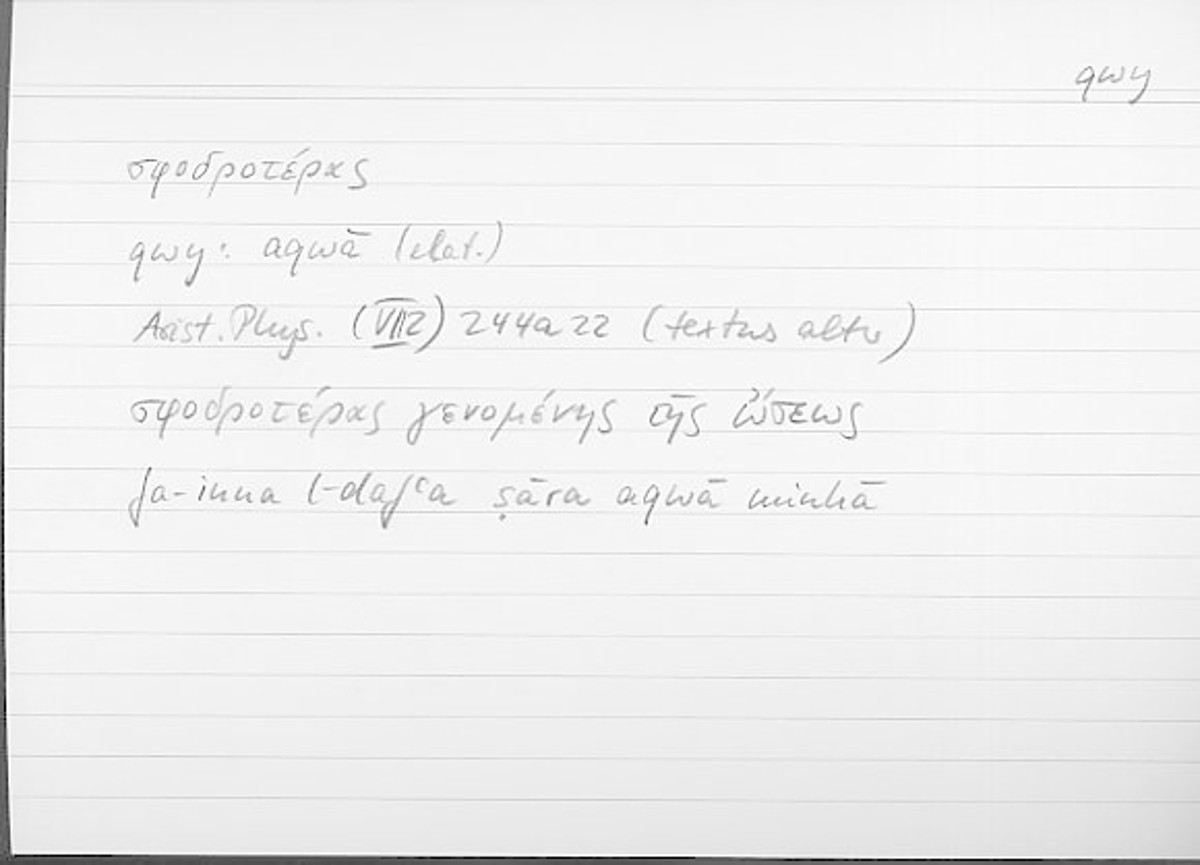 qwy
σφοδροτέρας
qwy: aqwā (elat.)
Arist. Phys. (VII2) 244a22 (textus alter)
σφοδροτέρας γενομένης τῆς ὤσεως
fa-inna l-dafʿa ṣāra aqwā minhā